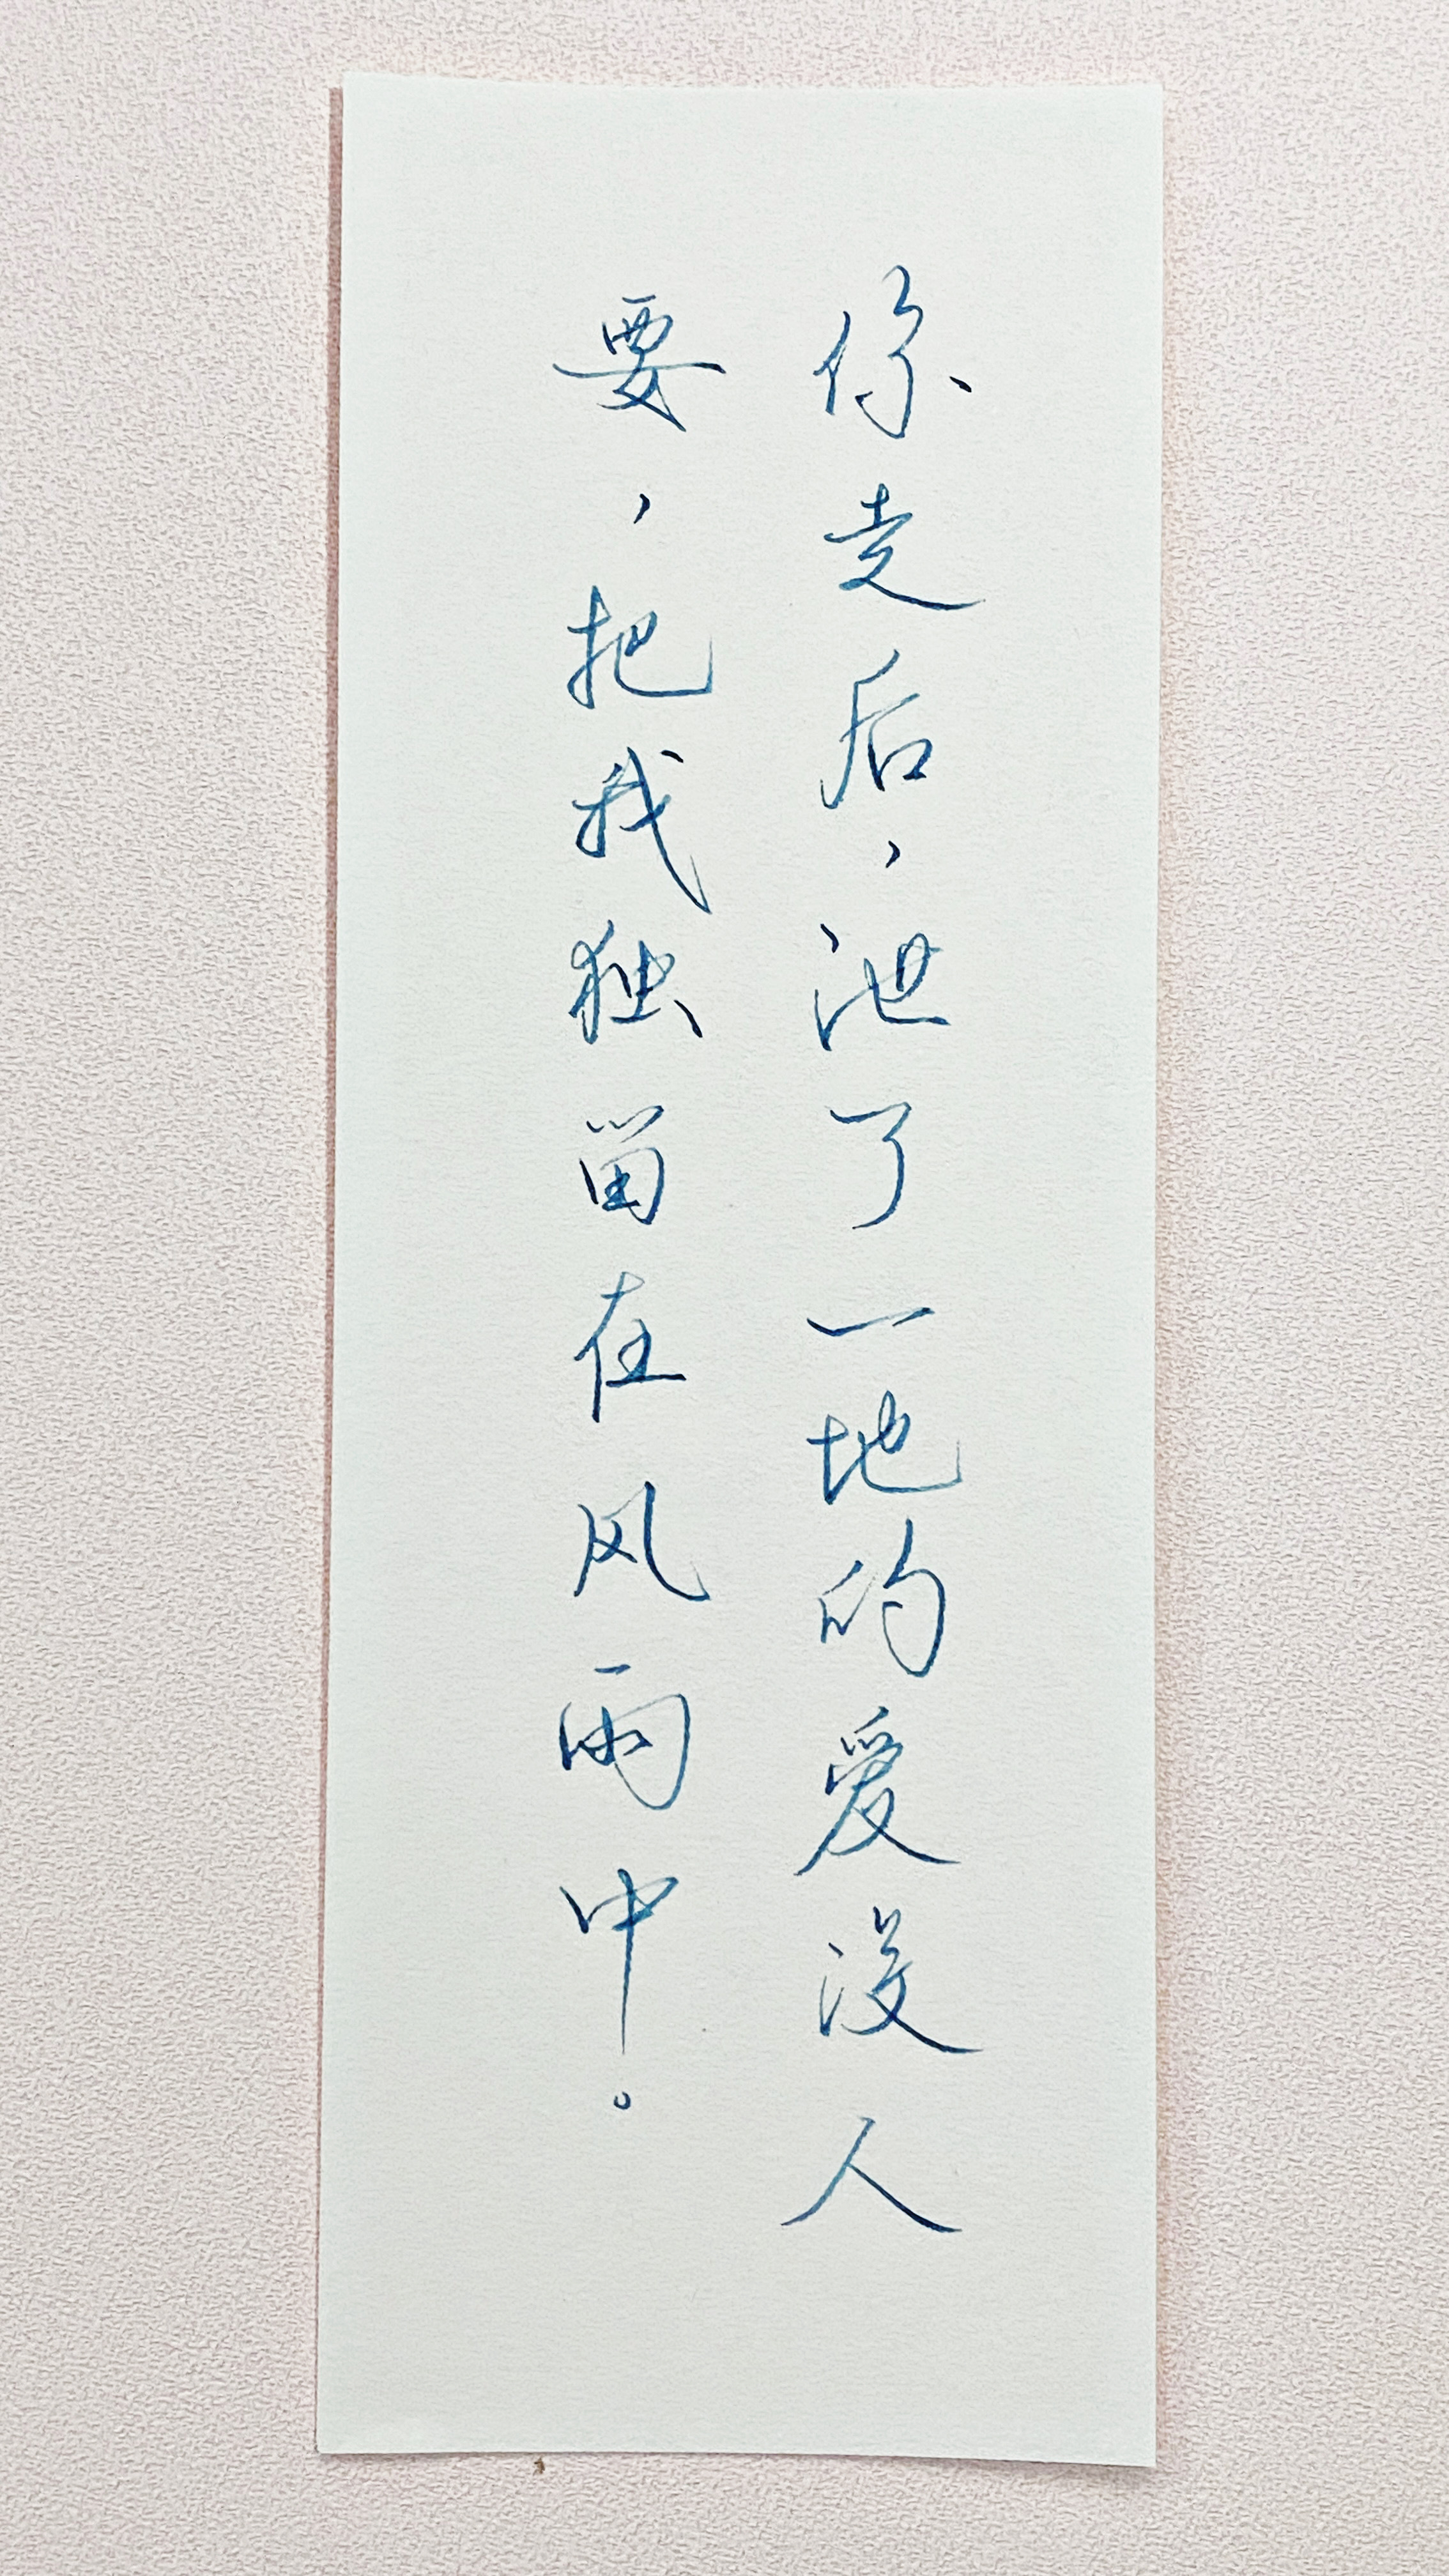 你走后，泄了一地的爱没人
要，把我独留在风雨中。